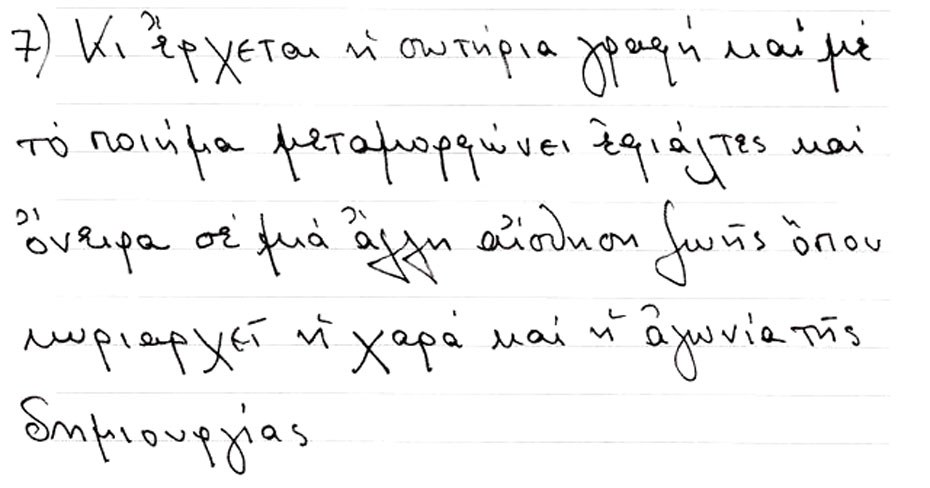 7) Κι ἔρχεται ἡ σωτήρια γραφή καί μέ
τό ποιήμα μεταμορφώνει ἐφιάλτες καί
ὄνειρα σέ μιά ἄλλη αἴσθηση ζωῆς ὅπου
κυριαρχεῖ ἡ χαρά καί ἡ ἀγωνία τῆς
δημιουργίας